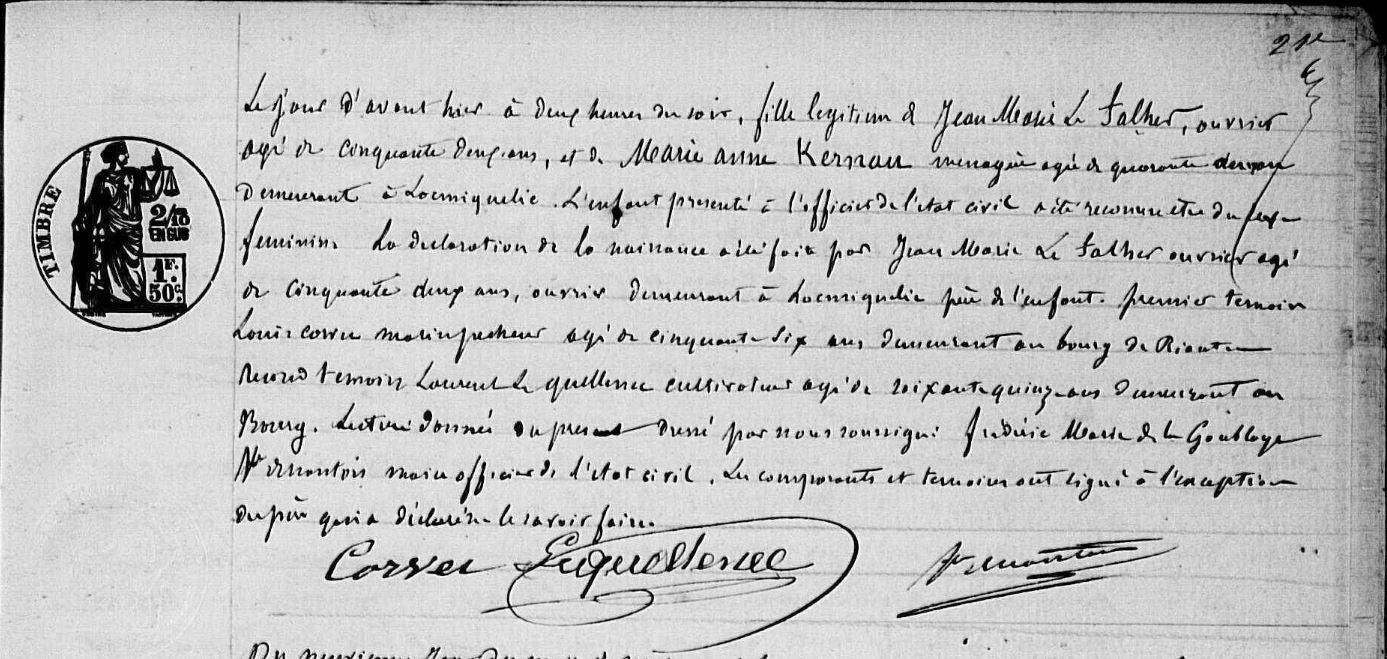 21e
Le jour d'avant hier à deux heures du soir, fille legitime d Jean Marie Le Falher, ouvrier
agé de cinquante deux ans, et de Marie anne Kernau menagère agée de quarante
demeurant à Locmiquelic. L'enfant presenté à l'officier de l'etat civil a été reconnu etre du sexe
feminin. La declaration de la naissance a été faite par Jean Marie Le Falher ouvrier agé
de cinquante deux ans, ouvrier demeurant à Locmiquelic père de l'enfant. premier temoin
Louis correc marin pecheur agé de cinquante six ans demeurant au bourg de Riantec
second temoin Laurent Le quellenec cultivateur agé de soixante quinze ans demeurant au
Bourg. Lecture donnée du present dressé par nous soussigné frédéric Marie de la Goublaye
Vte de nantois maire officier de l'etat civil. Les comparants et temoins ont signé à l'exception
du père qui a déclaré ne le savoir faire.
Correc Lequellenec
TIMBRE
2/10
EN SUS
1F.
50c.